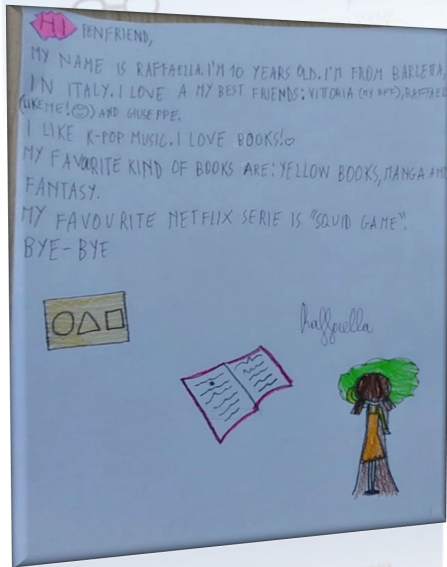 HI PENFRIEND,
MY NAME IS RAFFAELLA. I'M 10 YEARS OLD. I'M FROM BARLETTA,
IN ITALY. I LOVE A MY BEST FRIENDS: VITTORIA (MY BFF), RAFFAEL
(LIKE ME! ☺) AND GIUSEPPE.
I LIKE K-POP MUSIC. I LOVE BOOKS! ♡
MY FAVOURITE KIND OF BOOKS ARE: YELLOW BOOKS, MANGA AND
FANTASY.
MY FAVOURITE NETFLIX SERIE IS "SQUID GAME".
BYE-BYE
Raffaella